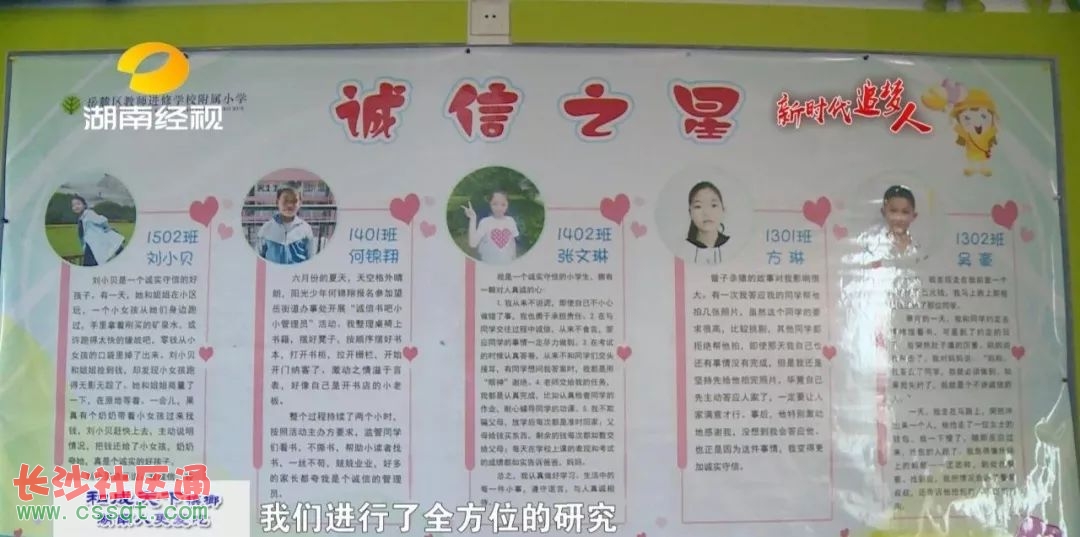 岳麓区教师进修学校附属小学
湖南经视
诚信之星
新时代追梦人
1502班
刘小贝
刘小贝是一个诚实守信的好
孩子。有一天，她和姐姐在小区
玩，一个小女孩从她们身边跑
过，手里拿着刚买的矿泉水。或
许跑得太快的缘故吧，零钱从小
女孩的口袋里掉了出来，刘小贝
和姐姐捡到钱，却发现小女孩跑
得无影无踪了。她和姐姐商量了
一下，在原地等着。一会儿，果
真有个奶奶带着小女孩过来找
钱，刘小贝赶快上去，主动说明
情况，把钱还给了小女孩，奶奶
夸她，真是个诚实的好孩子。
1401班
何锦翔
六月份的夏天，天空格外晴
朗，阳光少年何锦翔报名参加望
岳街道办事处开展“诚信书吧小
小管理员”活动。我整理桌椅上
书籍，摆好凳子，按顺序摆好书
本，打开书柜，拉开栅栏，开始
开门纳客了，激动之情溢于言
表，好像自己是开书店的小老
板。
整个过程持续了两个小时，
按照活动主办方要求，监管同学
们看书，不撕书，帮助小读者找
书，一丝不苟，兢兢业业，好多
的家长都夸我是个诚信的管理
员。
1402班
张文琳
我是一个诚实守信的小学生，拥有
一颗对人真诚的心：
1.我从来不说谎，即使自己不小心
做错了事，我也勇于承担责任。2.在与
同学交往过程中诚信，从来不食言，答
应同学的事情一定尽力做到。3.在考试
的时候认真答卷，从来不和同学们交头
接耳，有同学想问我答案时，我都是用
“眼神”谢绝。4.老师交给我的任务，
我都是认真完成，比如认真检查同学的
作业，耐心辅导同学的功课。5.我不欺
骗父母，放学后每次都是准时回家，父
母给钱买东西，剩余的钱每次都如数交
给父母。每天在学校上课的表现和考试
的成绩都如实告诉爸爸、妈妈。
总之，我认真做好学习、生活中的
每一件小事，遵守诺言，与人真诚相
1301班
方琳
曾子杀猪的故事对我影响很
大。有一次我答应我的同学帮他
拍几张照片。虽然这个同学的要
求很高，比较挑剔，其他同学都
拒绝帮他拍，即使那天我自己也
还有事情没有完成，但是我还是
坚持先给他拍完照片，毕竟自己
先主动答应人家了，一定要让人
家满意才行。事后，他特别激动
地感谢我，没想到我会答应他，
也正是因为这件事情，我变得更
加诚实守信。
1302班
吴豪
长沙社区通
www.cssqt.com
我们进行了全方位的研究